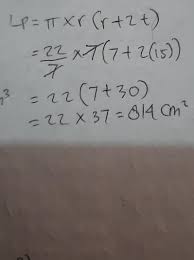 Lp = π × r (r + 2t)
= 22/7 × 7 (7 + 2(15))
m³ = 22 (7 + 30)
= 22 × 37 = 814 cm²